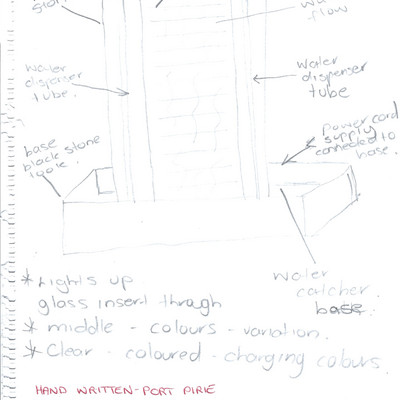 flow
water
dispenser
tube.
water
dispenser
tube
power cord
supply
connected to
base.
base
black stone
look.
water
catcher.
base.
* Lights up
glass insert through
* middle - colours - variation.
* Clear - coloured - changing colours.
HAND WRITTEN - PORT PIRIE